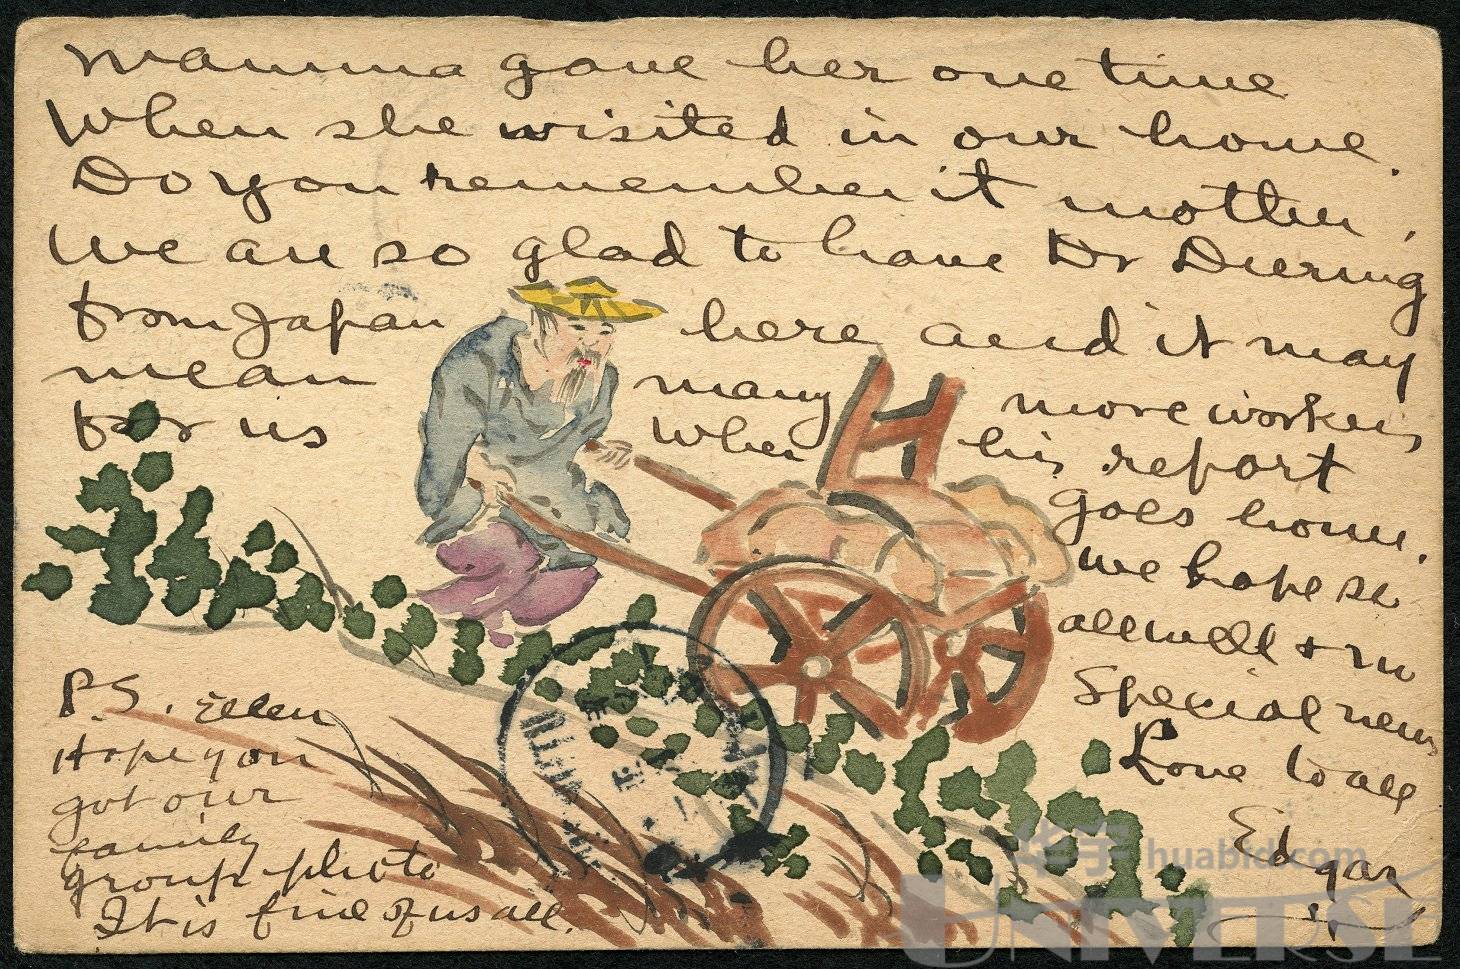 mamma gave her one time
When she visited in our home.
Do you remember it mother,
We are so glad to have Dr Deering
from Japan here and it may
mean many more workers
for us when his report
goes home.
we hope se
all well + no
special news
Love to all
Edgar
P.S. Ellen
Hope you
got our
family
group photo
It is fine of us all.
华宇 huabid.com
UNIVERSE